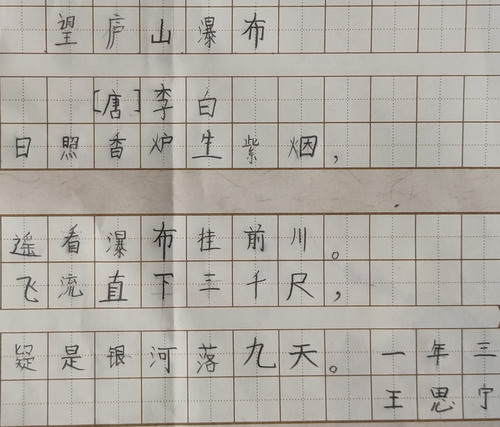 望庐山瀑布
[唐]李白
日照香炉生紫烟,
遥看瀑布挂前川。
飞流直下三千尺,
疑是银河落九天。 一年三
王思宁